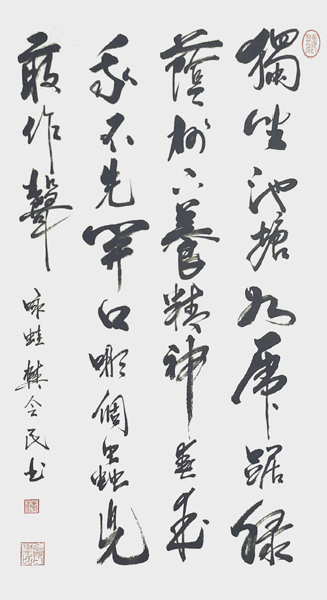 獨坐池塘如虎踞緑
蔭樹下養精神春来
我不先開口哪個蟲児
敢作聲
咏蛙 樊会民书